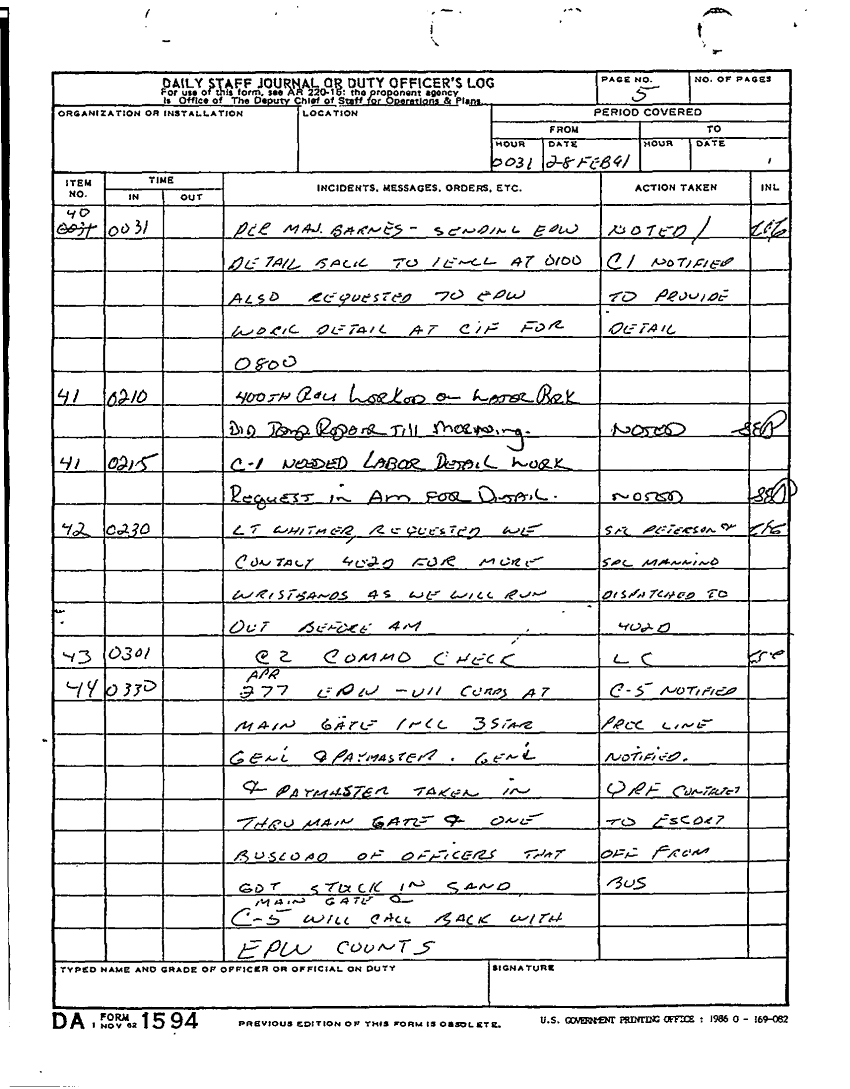 DAILY STAFF JOURNAL OR DUTY OFFICER'S LOG
For use of this form, see AR 220-15: the proponent agency
is Office of The Deputy Chief of Staff for Operations & Plans.
PAGE NO.
5
NO. OF PAGES
ORGANIZATION OR INSTALLATION
LOCATION
PERIOD COVERED
FROM
TO
HOUR
DATE
HOUR
DATE
0031
28 FEB 91
ITEM NO.
TIME
IN
OUT
INCIDENTS, MESSAGES, ORDERS, ETC.
ACTION TAKEN
INL
40 0031 PER MAJ. BARNES - SENDING EPW NOTED /
DETAIL BACK TO 1 ENCL AT 0100 C1 NOTIFIED
ALSO REQUESTED 70 EPW TO PROVIDE
WORK DETAIL AT CIF FOR DETAIL
0800
41 0210 400TH Worked on Water Brk
Did Temp Repair Till Morning. NOTED
41 0215 C-1 NEEDED LABOR DETAIL WORK
Request in AM FOR Detail. NOTED
42 0230 LT WHITMER REQUESTED WE PETERSON &
CONTACT 402D FOR MORE SPC MANNINO
WRISTBANDS AS WE WILL RUN DISPATCHED TO
OUT BEFORE AM 402D
43 0301 C2 COMMO CHECK LC
APR
44 0330 377 EPW - VII CORPS AT C-5 NOTIFIED
MAIN GATE INCL 3 STAR PROC LINE
GENL & PAYMASTER. GENL NOTIFIED.
& PAYMASTER TAKEN IN QRF CONTACTED
THRU MAIN GATE & ONE TO ESCORT
BUSLOAD OF OFFICERS THAT OFF FROM
GOT STUCK IN SAND BUS
MAIN GATE &
C-5 WILL CALL BACK WITH
EPW COUNTS
TYPED NAME AND GRADE OF OFFICER OR OFFICIAL ON DUTY
SIGNATURE
DA FORM 1 NOV 62 1594
PREVIOUS EDITION OF THIS FORM IS OBSOLETE.
U.S. GOVERNMENT PRINTING OFFICE : 1986 O - 169-082